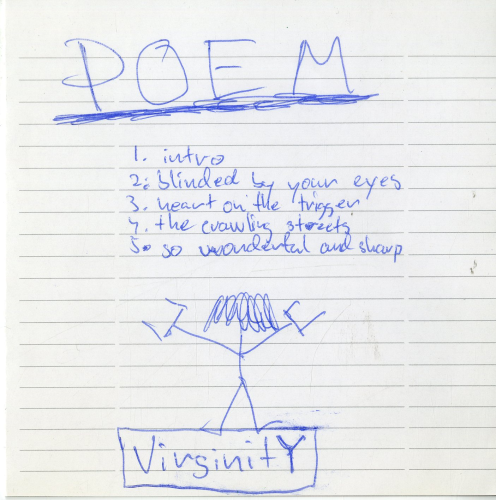 POEM
1. intro
2. blinded by your eyes
3. heart on the trigger
4. the crawling streets
5. so wondental and sharp
VirginitY